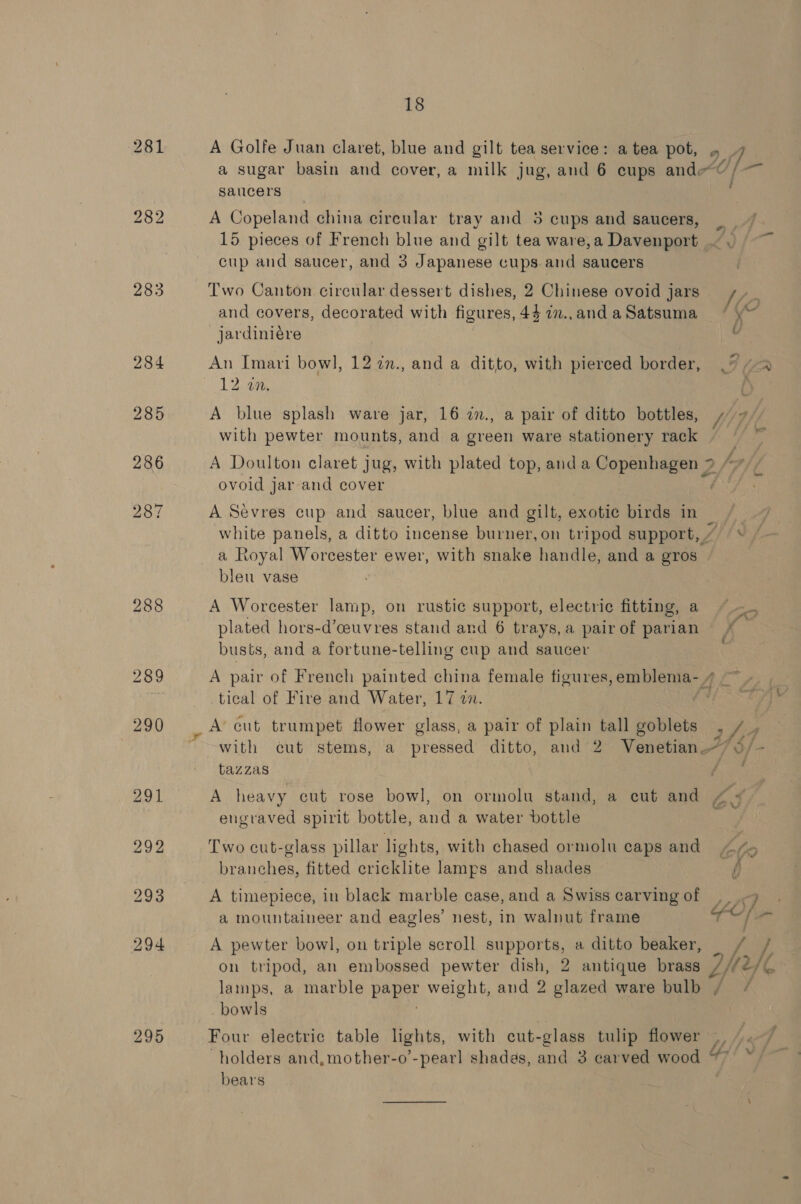 18
281 A Golfe Juan claret, blue and gilt tea service: a tea pot,
a sugar basin and cover, a milk jug, and 6 cups and
saucers
282 A Copeland china circular tray and 3 cups and saucers,
15 pieces of French blue and gilt tea ware, a Davenport
cup and saucer, and 3 Japanese cups and saucers
283 Two Canton circular dessert dishes, 2 Chinese ovoid jars
and covers, decorated with figures, 4½ in., and a Satsuma
jardiniére
284 An Imari bowl, 12 in., and a ditto, with pierced border,
12 in.
285 A blue splash ware jar, 16 in., a pair of ditto bottles,
with pewter mounts, and a green ware stationery rack
286 A Doulton claret jug, with plated top, and a Copenhagen
ovoid jar and cover
287 A Sèvres cup and saucer, blue and gilt, exotic birds in
white panels, a ditto incense burner, on tripod support,
a Royal Worcester ewer, with snake handle, and a gros
bleu vase
288 A Worcester lamp, on rustic support, electric fitting, a
plated hors-d'œuvres stand and 6 trays, a pair of parian
busts, and a fortune-telling cup and saucer
289 A pair of French painted china female figures, emblema-
tical of Fire and Water, 17 in.
290 A cut trumpet flower glass, a pair of plain tall goblets
with cut stems, a pressed ditto, and 2 Venetian
tazzas
291 A heavy cut rose bowl, on ormolu stand, a cut and
engraved spirit bottle, and a water bottle
292 Two cut-glass pillar lights, with chased ormolu caps and
branches, fitted cricklite lamps and shades
293 A timepiece, in black marble case, and a Swiss carving of
a mountaineer and eagles' nest, in walnut frame
294 A pewter bowl, on triple scroll supports, a ditto beaker,
on tripod, an embossed pewter dish, 2 antique brass
lamps, a marble paper weight, and 2 glazed ware bulb
bowls
295 Four electric table lights, with cut-glass tulip flower
holders and mother-o'-pearl shades, and 3 carved wood
bears